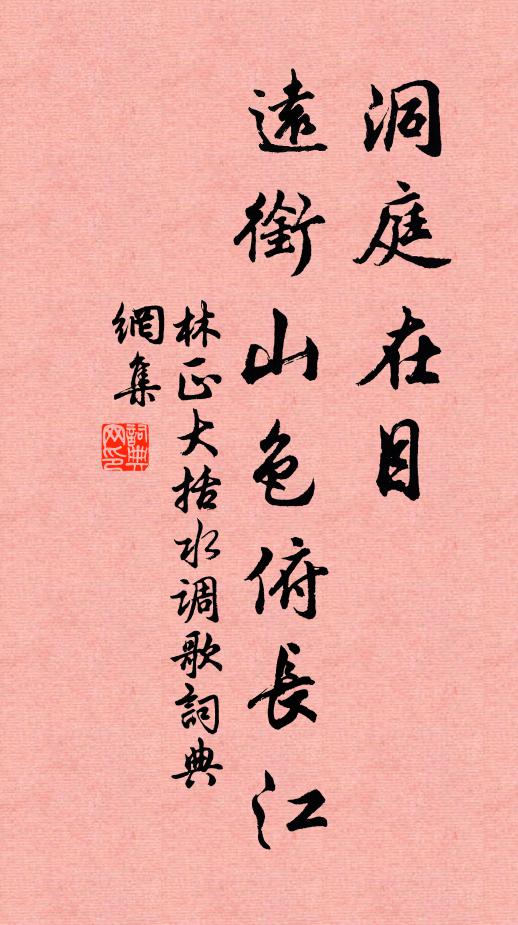 洞庭在目
遠銜山色俯長江
林正大括水调歌詞典
網集
詞典
网印